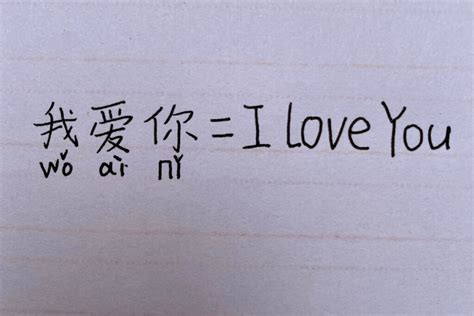 我爱你=I Love You
wǒ ài nǐ